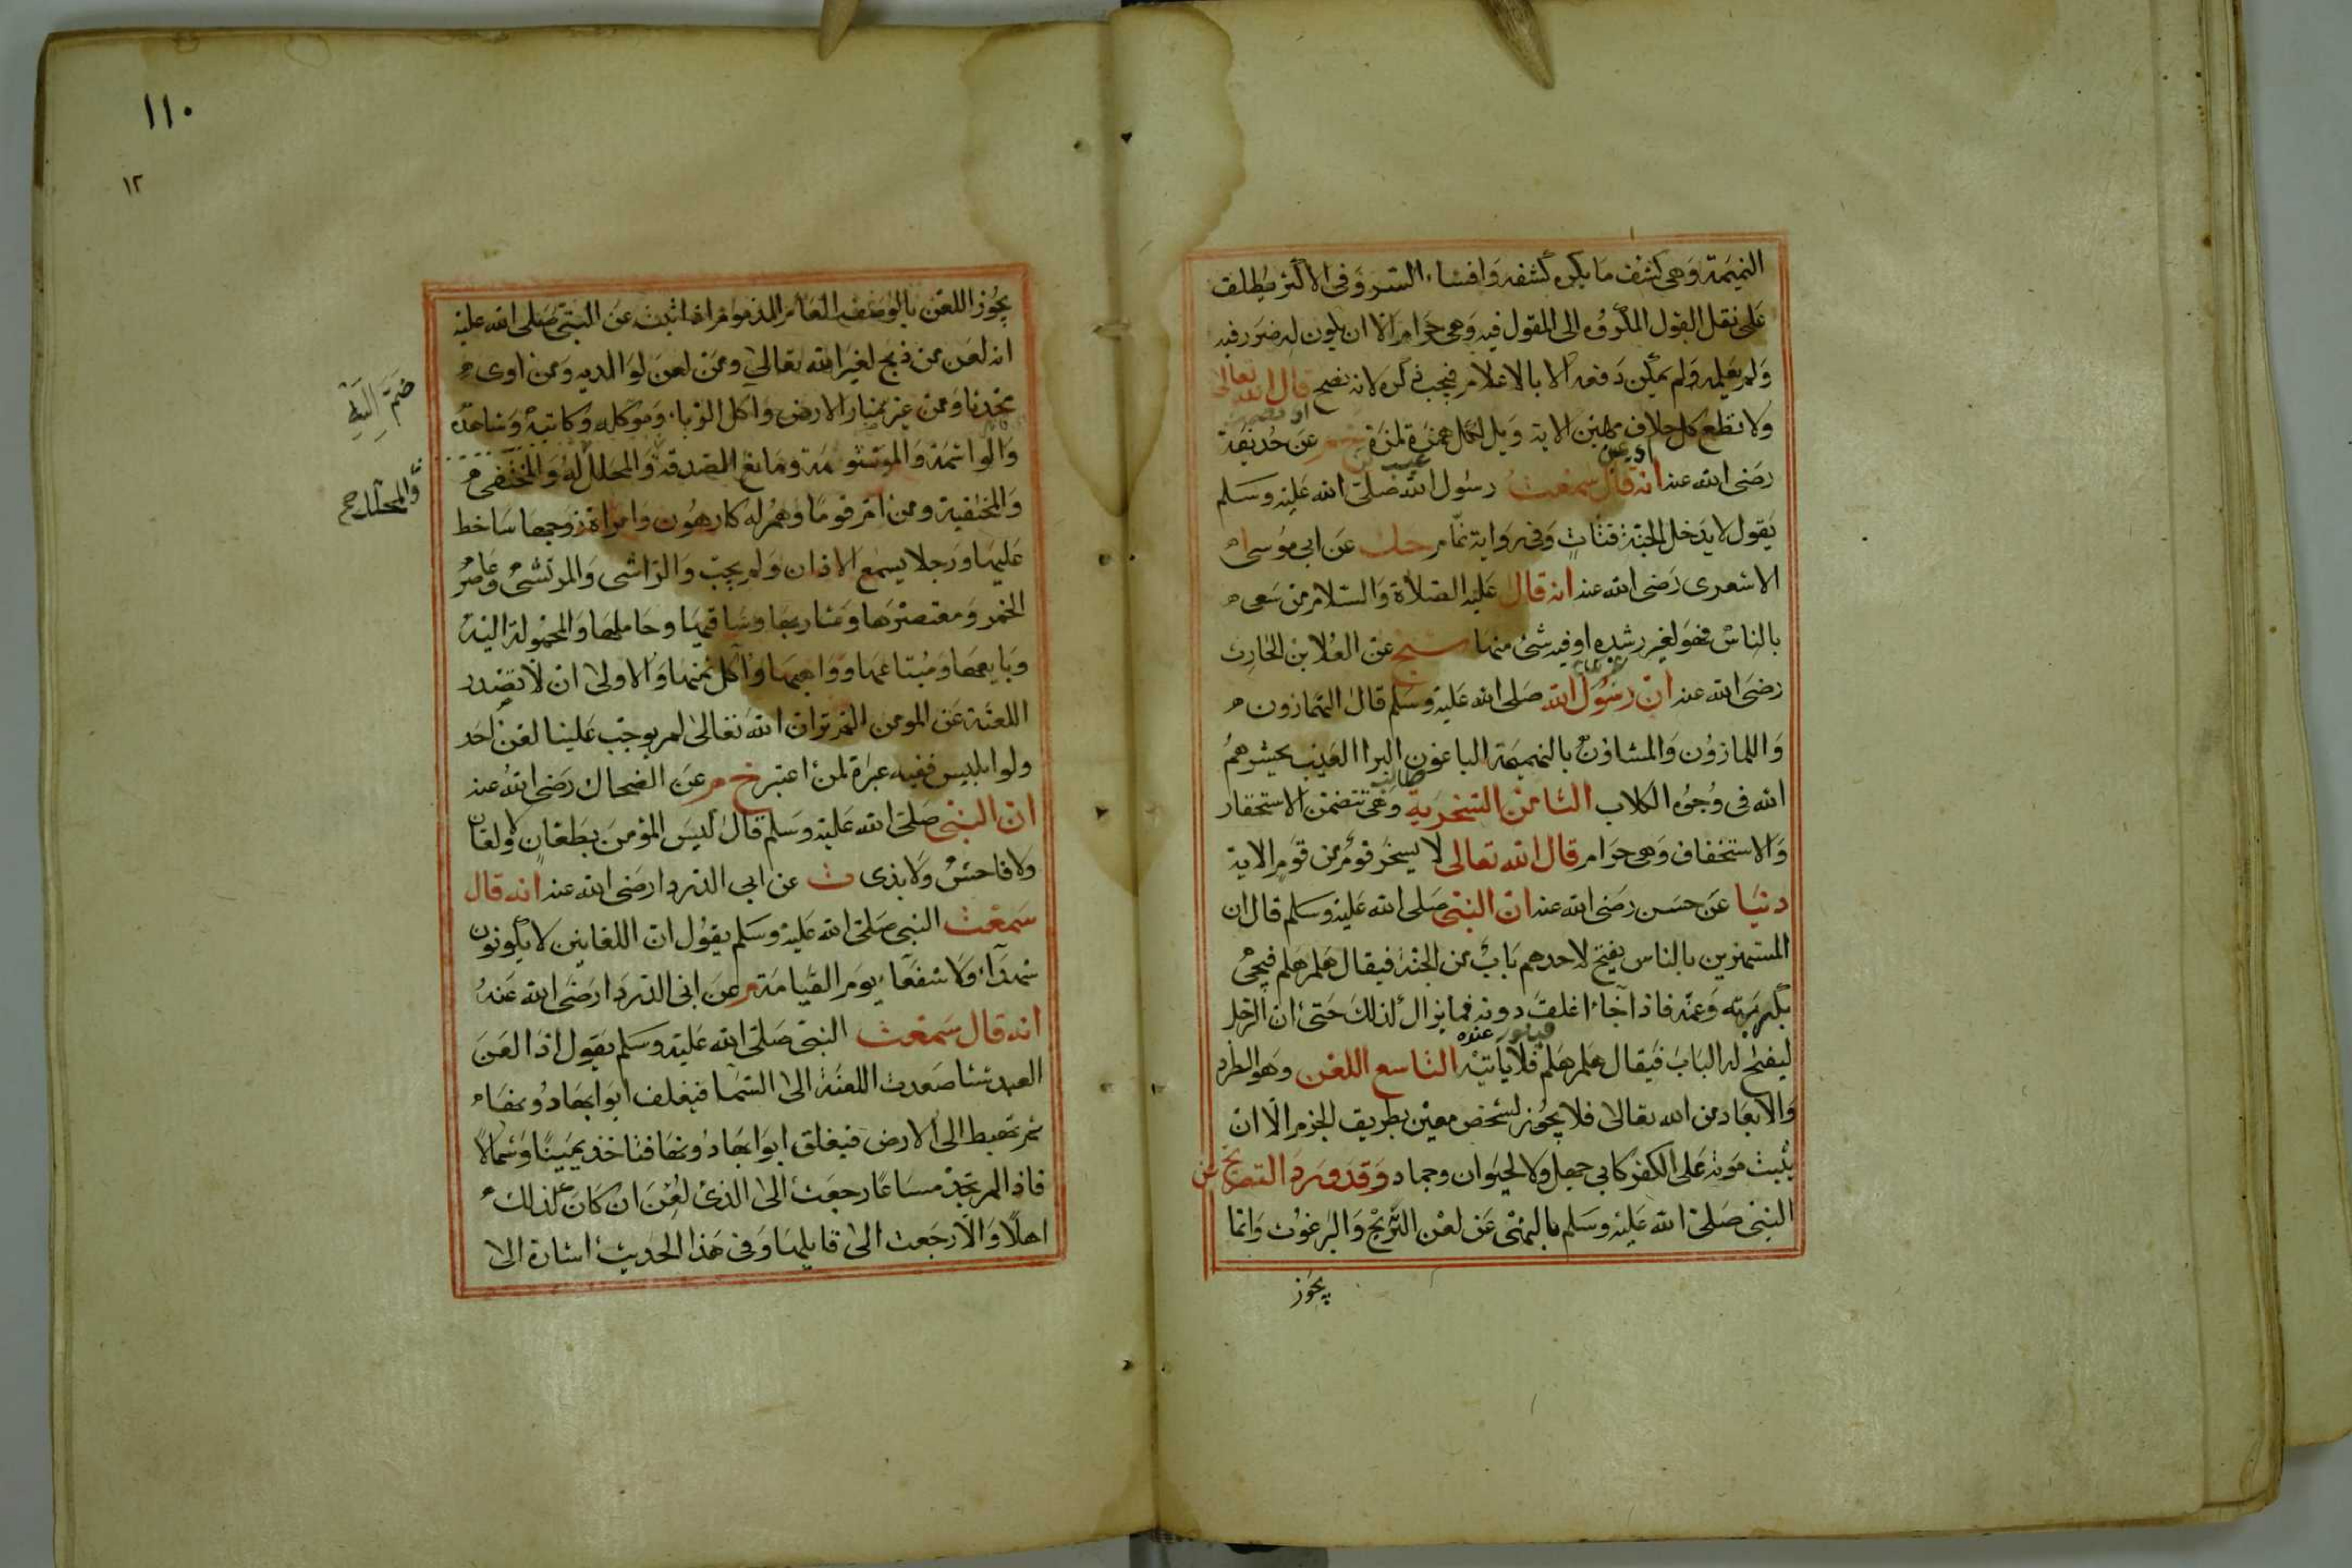 النميمة وهى كشف ما يكره كشفه وافشاء السر وفى الاكثر يطلق
على نقل القول المكروه الى المقول فيه وهى حرام الا ان يكون له ضرر فيه
ولم يعلمه ولم يمكن دفعه الا بالاعلام فيجب ذكره لانه نصح قال الله تعالى
ولا تطع كل حلاف مهين الاية ويل لكل همزة لمزة خ م عن حذيفة
رضى الله عنه انه قال سمعت رسول الله صلى الله عليه وسلم
يقول لا يدخل الجنة قتات وفى رواية نمام حك عن ابى موسى
الاشعرى رضى الله عنه انه قال عليه الصلاة والسلام من سعى
بالناس فهو لغير رشده او فيه شئ منها شيخ عن العلا بن الحارث
رضى الله عنه ان رسول الله صلى الله عليه وسلم قال الهمازون
واللمازون والمشاؤن بالنميمة الباغون البرا العيب يحشرهم
الله فى وجوه الكلاب الثامن السخرية وهى تتضمن الاستحقار
والاستخفاف وهى حرام قال الله تعالى لا يسخر قوم من قوم الاية
دنيا عن حسن رضى الله عنه ان النبى صلى الله عليه وسلم قال ان
المستهزين بالناس يفتح لاحدهم باب من الجنة فيقال هلم هلم فيجئ
بكربته وغمه فاذا جاء اغلق دونه فما يزال لذلك حتى ان الرجل
ليفتح له الباب فيقال هلم هلم فلا ياتيه التاسع اللعن وهو الطرد
والابعاد من الله تعالى فلا يجوز لشخص معين بطريق الجزم الا ان
يثبت موته على الكفر كابى جهل ولا لحيوان وجماد وقد ورد التصريح عن
النبى صلى الله عليه وسلم بالنهى عن لعن الريح والبرغوث وانما
يجوز
١١٠
١٢
يجوز اللعن بالوصف العام المذموم اذا ثبت عن النبى صلى الله عليه
انه لعن من ذبح لغير الله تعالى ومن لعن لوالديه ومن اوى
محدثا ومن غير منار الارض واكل الربا وموكله وكاتبه وشاهده
والواشمة والموتشومة ومانع الصدقة والمحلل له والمختفى
والمختفية ومن ام قوما وهم له كارهون وامراة زوجها ساخط
عليها ورجلا يسمع الاذان ولم يجب والراشى والمرتشى وعاصر
الخمر ومعتصرها وشاربها وساقيها وحاملها والمحمولة اليه
وبايعها ومبتاعها وواهبها واكل ثمنها والاولى ان لا تصدر
اللعنة عن المومن الم تر ان الله تعالى لم يوجب علينا لعن احد
ولو ابليس ففيه عبرة لمن اعتبر خ م عن الضحاك رضى الله عنه
ان النبى صلى الله عليه وسلم قال ليس المؤمن بطعان ولا لعان
ولا فاحش ولا بذى ت عن ابى الدردا رضى الله عنه انه قال
سمعت النبى صلى الله عليه وسلم يقول ان اللعانين لا يكونون
شهداء ولا شفعاء يوم القيامة م عن ابى الدردا رضى الله عنه
انه قال سمعت النبى صلى الله عليه وسلم يقول اذا لعن
العبد شئا صعدت اللعنة الى السما فيغلق ابوابها دونها
ثم تهبط الى الارض فيغلق ابوابها دونها فتاخذ يمينا وشمالا
فاذا لم تجد مساغا رجعت الى الذى لعن ان كان لذلك
اهلا والا رجعت الى قايلها وفى هذا الحديث اشارة الى
والمحلل صح